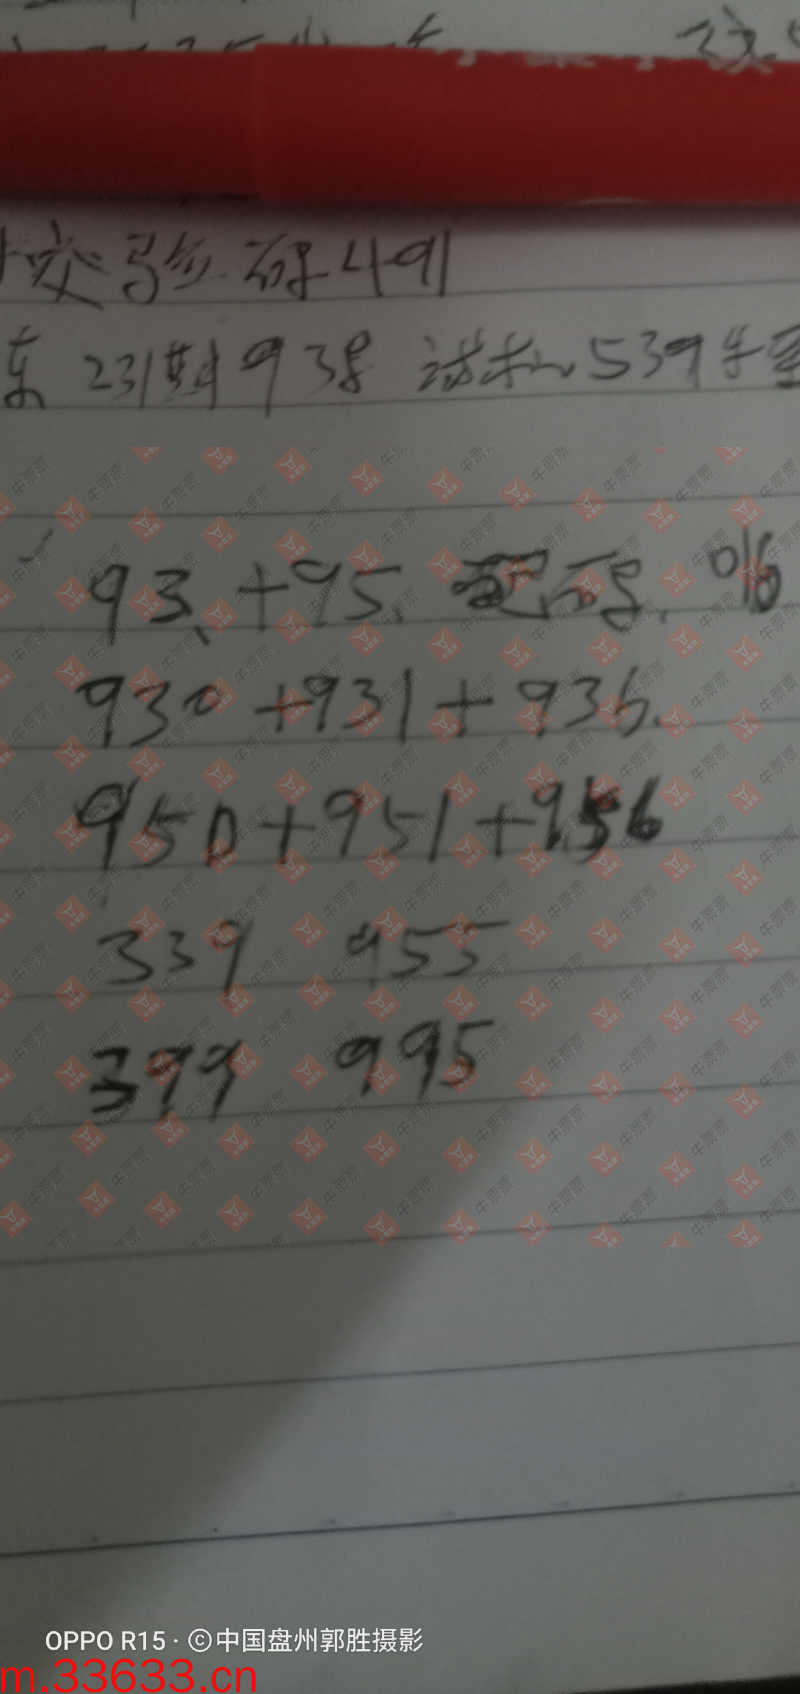 验码491
东 231期938 试机539
93、+95、配码、016
930+931+936.
950+951+956
339 955
399 995
牛票票
OPPO R15 · ©中国盘州郭胜摄影
m.33633.cn